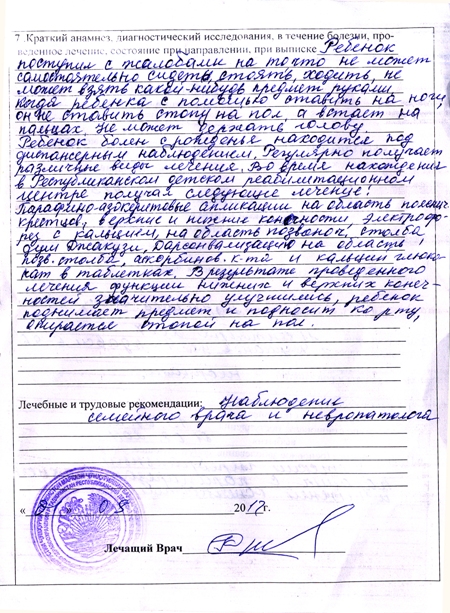 7. Краткий анамнез, диагностический исследования, в течение болезни, про-
веденное лечение, состояние при направлении, при выписке Ребенок
поступил с жалобами на то что не может
самостоятельно сидеть, стоять, ходить, не
может взять какой-нибудь предмет руками,
когда ребенка с помощью ставить на ноги,
он не ставить стопу на пол, а встает на
пальцах. Не может держать голову.
Ребенок болен с рожденье находится под
диспансерным наблюдением. Регулярно получает
различные виды лечения. Во время нахождения
в Республиканском детском реабилитационном
центре получал следующее лечение:
Парафино-озокитовые апликации на область
крестцов, верхние и нижние конечности электрофо-
рез кальцием, на область позвоноч. столба
Джакузи, Дарсонвализацию на область
позв. столба, аскорбинов. к-та и кальций глюко-
нат в таблетках. В результате проведенного
лечения функции нижних и верхних конеч-
ностей значительно улучшились, ребенок
поднимает предмет и подносит ко рту,
опирается стопой на пол.
Лечебные и трудовые рекомендации: Наблюдение
семейного врача и невропатолога
2012г.
Лечащий Врач